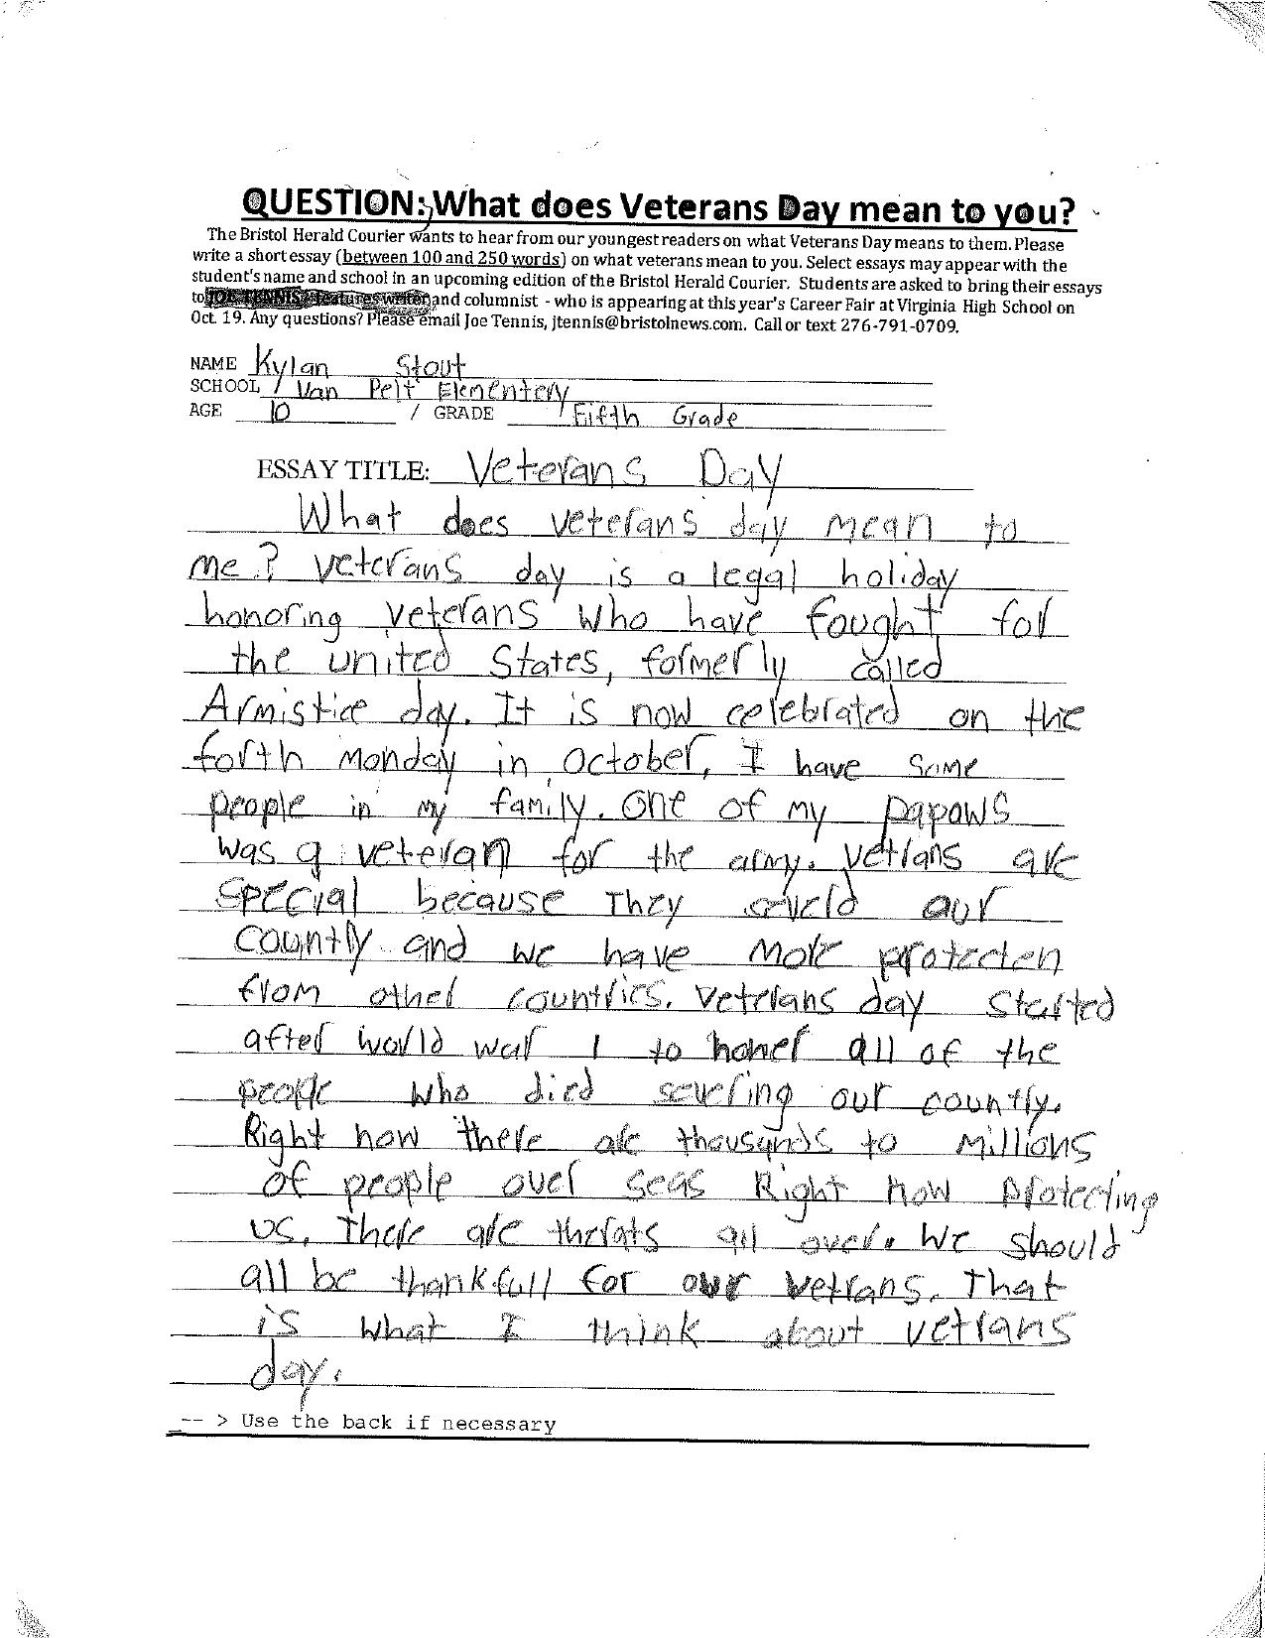 QUESTION: What does Veterans Day mean to you?
The Bristol Herald Courier wants to hear from our youngest readers on what Veterans Day means to them. Please
write a short essay (between 100 and 250 words) on what veterans mean to you. Select essays may appear with the
student's name and school in an upcoming edition of the Bristol Herald Courier. Students are asked to bring their essays
to JOE TENNIS - features writer and columnist - who is appearing at this year's Career Fair at Virginia High School on
Oct. 19. Any questions? Please email Joe Tennis, jtennis@bristolnews.com. Call or text 276-791-0709.
NAME Kylan Stout
SCHOOL / Van Pelt Elementery
AGE 10 / GRADE Fifth Grade
ESSAY TITLE: Veterans Day
What does veterans day mean to
me? veterans day is a legal holiday
honoring veterans who have fought for
the united States, formerly called
Armistice day. It is now celebrated on the
forth monday in October, I have some
people in my family. One of my papaws
was a veteran for the army. vetrans are
special because They our
country and we have more protecten
from other countries. veterans day started
after world war 1 to honer all of the
people who died severing our country.
Right now there are thousynds to Millions
of people over seas Right now protecting
us. There are therats all over. We should
all be thankfull for our vetrans. That
is what I think about vetrans
day.
-- > Use the back if necessary